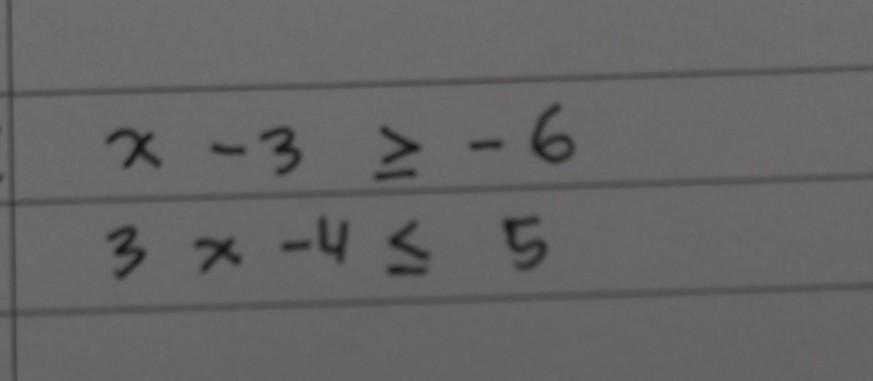 x - 3 ≥ - 6
3 x - 4 ≤ 5